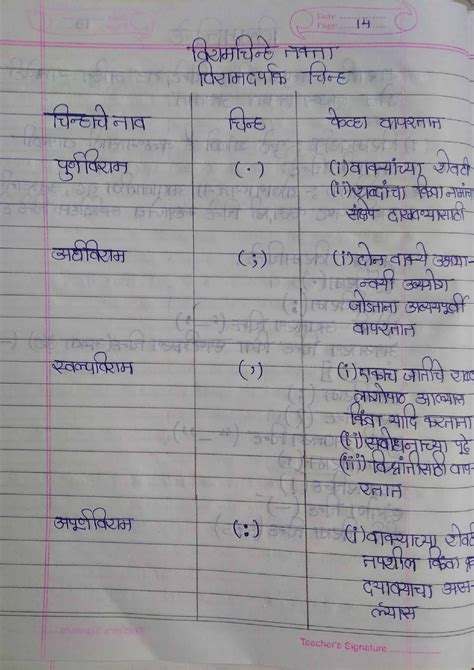 Date:
Page: 14
विरामचिन्हे तक्ता
विरामदर्शक चिन्ह
चिन्हाचे नाव | चिन्ह | केव्हा वापरतात
पुर्णविराम | (.) | (i) वाक्यांच्या शेवटी
(ii) शब्दांचा किंवा नामांचा
संक्षेप दाखवण्यासाठी
अर्धविराम | (;) | (i) दोन वाक्ये उभया-
न्वयी अव्ययांनी
जोडताना अव्ययपूर्वी
वापरतात
स्वल्पविराम | (,) | (i) एकाच जातीचे शब्द
लागोपाठ आल्यास
किंवा यादि करताना
(ii) संबोधनाच्या पुढे
(iii) विश्रांतीसाठी वाप-
रतात
अपूर्णविराम | (:) | (i) वाक्याच्या शेवटी
तपशील किंवा
द्यावयाचा अस-
ल्यास
Teacher's Signature